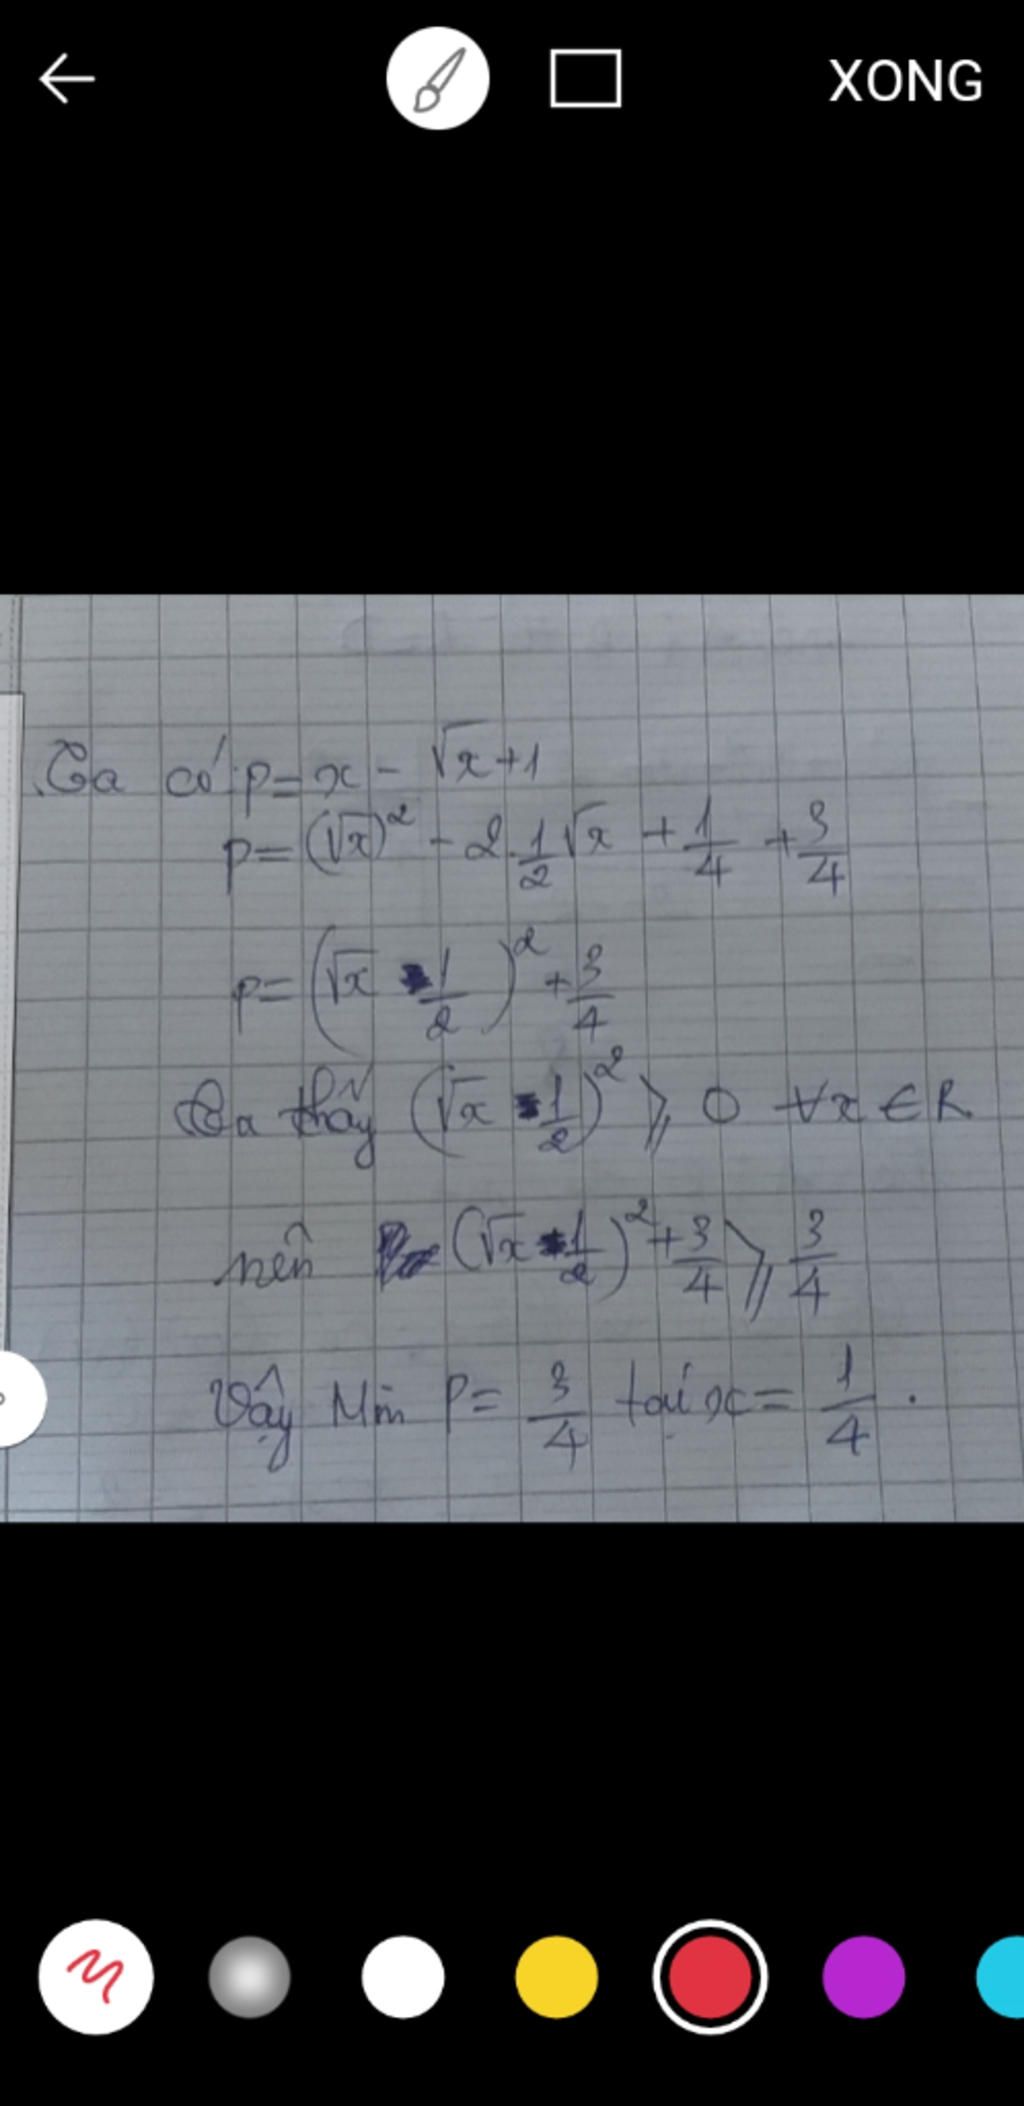 XONG
Ta có: P = x - √x + 1
P = (√x)² - 2.1/2 √x + 1/4 + 3/4
P = (√x - 1/2)² + 3/4
Ta thấy (√x - 1/2)² ⩾ 0 ∀x ∈ R
nên (√x - 1/2)² + 3/4 ⩾ 3/4
Vậy Min P = 3/4 tại x = 1/4.